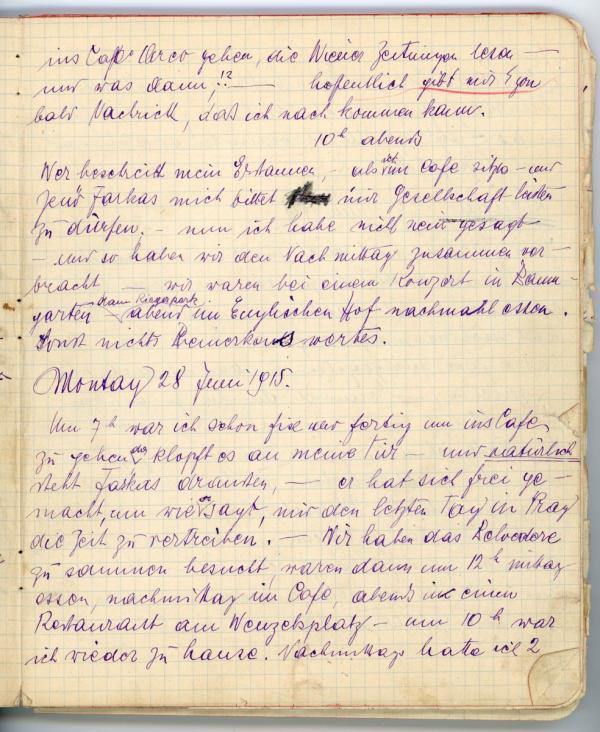 ins Café Arco gehen, die Wiener Zeitungen lesen —
und was dann, !? — hofentlich gibt mir Egon
bald Nachricht, daß ich nach kommen kann.
10h abends
Wer beschreibt mein Erstaunen, – als ich im Cafe sitze – und
Jenö Farkas mich bittet mir Gesellschaft leisten
zu dürfen. – nun ich habe nicht nein gesagt
– und so haben wir den Nach mittag zusammen ver-
bracht – wir waren bei einem Konzert in Baum-
garten dann Riegerpark abend im Englischen Hof nachmahl essen.
Sonst nichts Bemerkenswertes.
Montag 28 Juni 1915.
Um 7h war ich schon fix und fertig um ins Cafe
zu gehen da klopft es an meine Tür – und natürlich
steht Farkas draußen, — er hat sich frei ge-
macht, um wie er sagt, mir den letzten Tag in Prag
die Zeit zu vertreiben. — Wir haben das Belvedere
zu sammen besucht, waren dann um 12h mittag
essen, nachmittag im Cafe, abends in einem
Restaurant am Wenzelsplatz – um 10h war
ich wieder zu hause. Nachmittags hatte ich 2